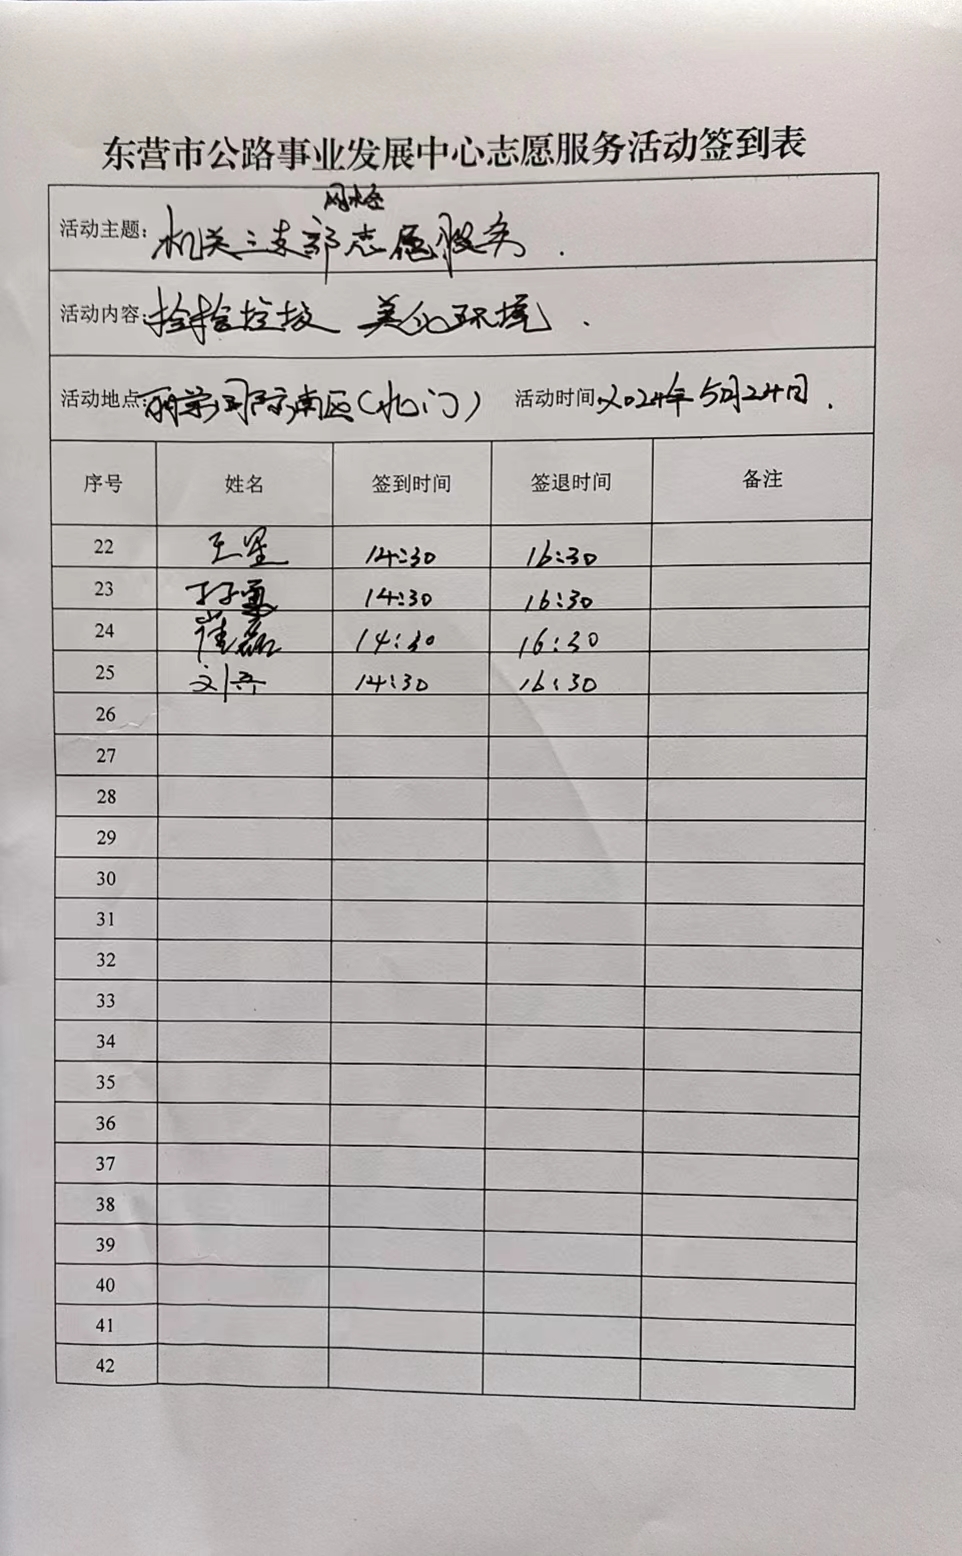 东营市公路事业发展中心志愿服务活动签到表
网格
活动主题：机关三支部志愿服务.
活动内容：捡拾垃圾 美化环境.
活动地点：丽景国际南区(北门) 活动时间：2024年5月24日.
序号 姓名 签到时间 签退时间 备注
22 王星 14:30 16:30
23 14:30 16:30
24 崔磊 14:30 16:30
25 刘 14:30 16:30
26
27
28
29
30
31
32
33
34
35
36
37
38
39
40
41
42